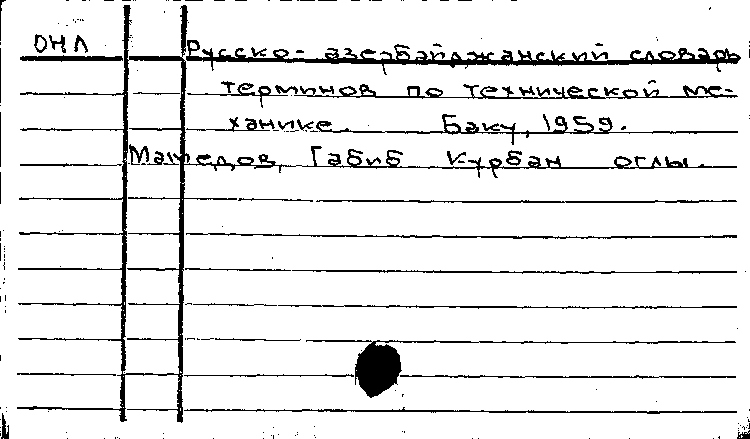 ОНЛ
Русско-азербайджанский словарь
терминов по технической ме-
ханике. Баку, 1959.
Мамедов, Габиб Курбан оглы.